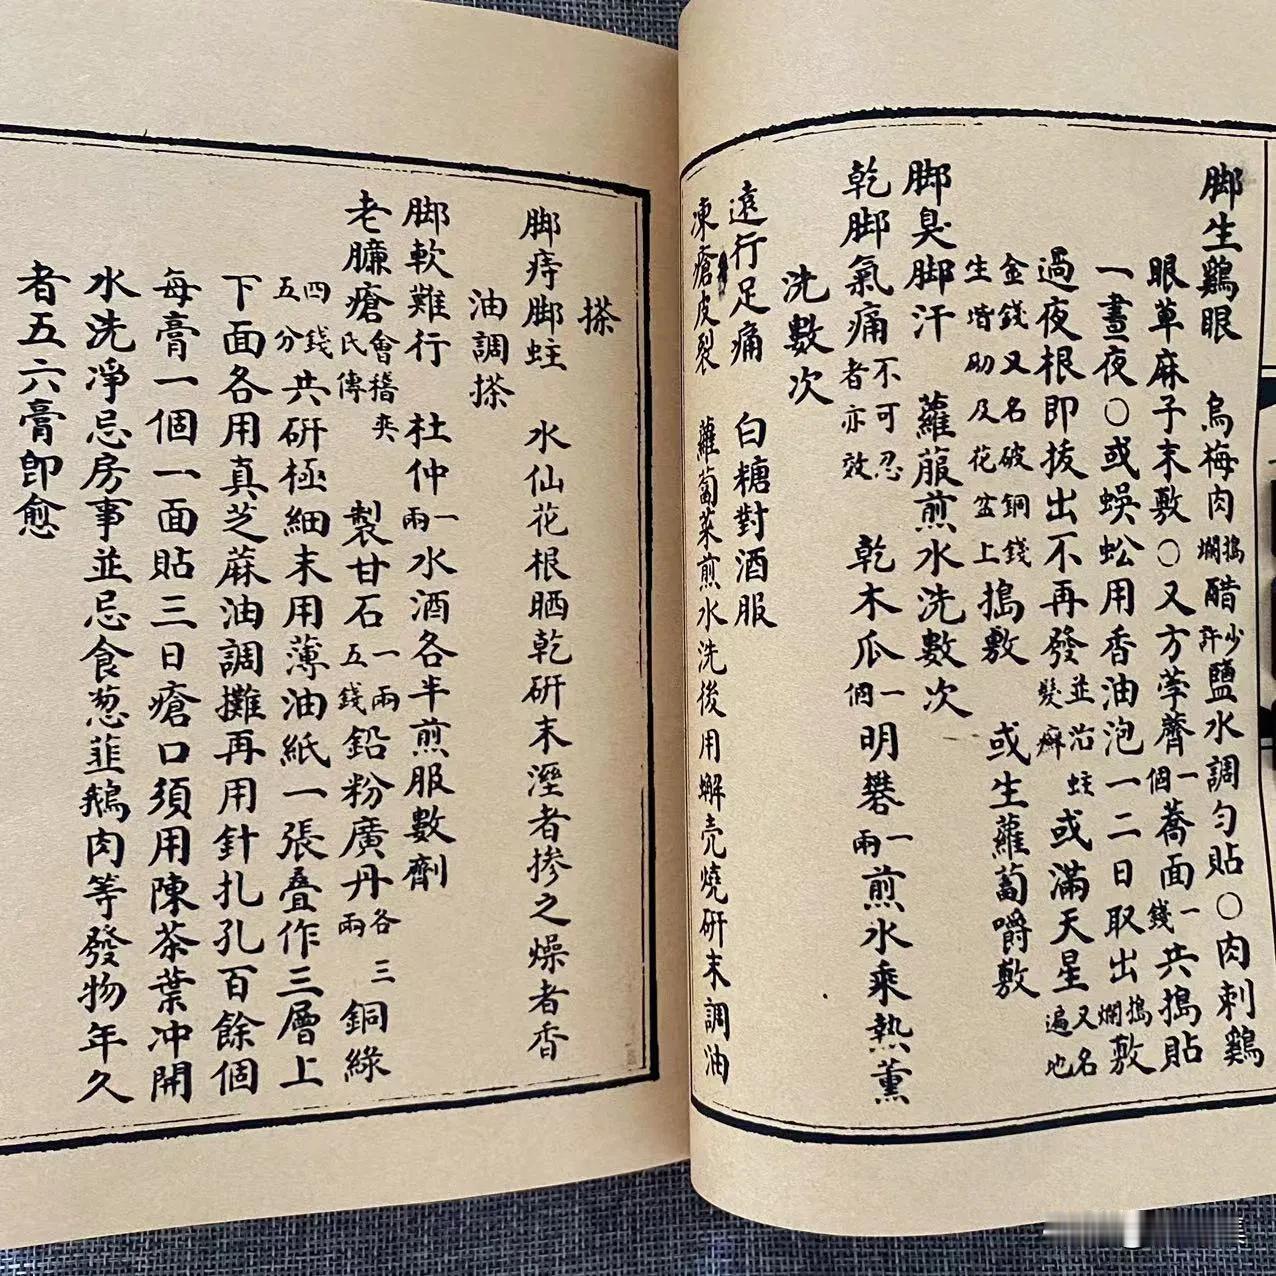 脚生鷄眼 烏梅肉搗爛醋少許鹽水調勻貼○肉刺鷄
眼草麻子末敷○又方荸薺一個蕎面一錢共搗貼
一晝夜○或蜈蚣用香油泡一二日取出搗爛敷
過夜根即拔出不再發並治蛀髮癬或滿天星又名遍地
金錢又名破銅錢生堦砌及花盆上搗敷 或生蘿蔔嚼敷
脚臭脚汗 蘿菔煎水洗數次
乾脚氣痛不可忍者亦效 乾木瓜一個明礬一兩煎水乘熱薰
洗數次
遠行足痛 白糖對酒服
凍瘡皮裂 蘿蔔菜煎水洗後用蠏壳燒研末調油
搽
脚痔脚蛀 水仙花根晒乾研末溼者摻之燥者香
油調搽
脚軟難行 杜仲一兩水酒各半煎服數劑
老臁瘡會稽夾氏傳 製甘石一兩五錢鉛粉廣丹各三兩銅綠
四錢五分共研極細末用薄油紙一張叠作三層上
下面各用真芝蔴油調攤再用針扎孔百餘個
每膏一個一面貼三日瘡口須用陳茶葉冲開
水洗凈忌房事並忌食葱韮鵝肉等發物年久
者五六膏即愈